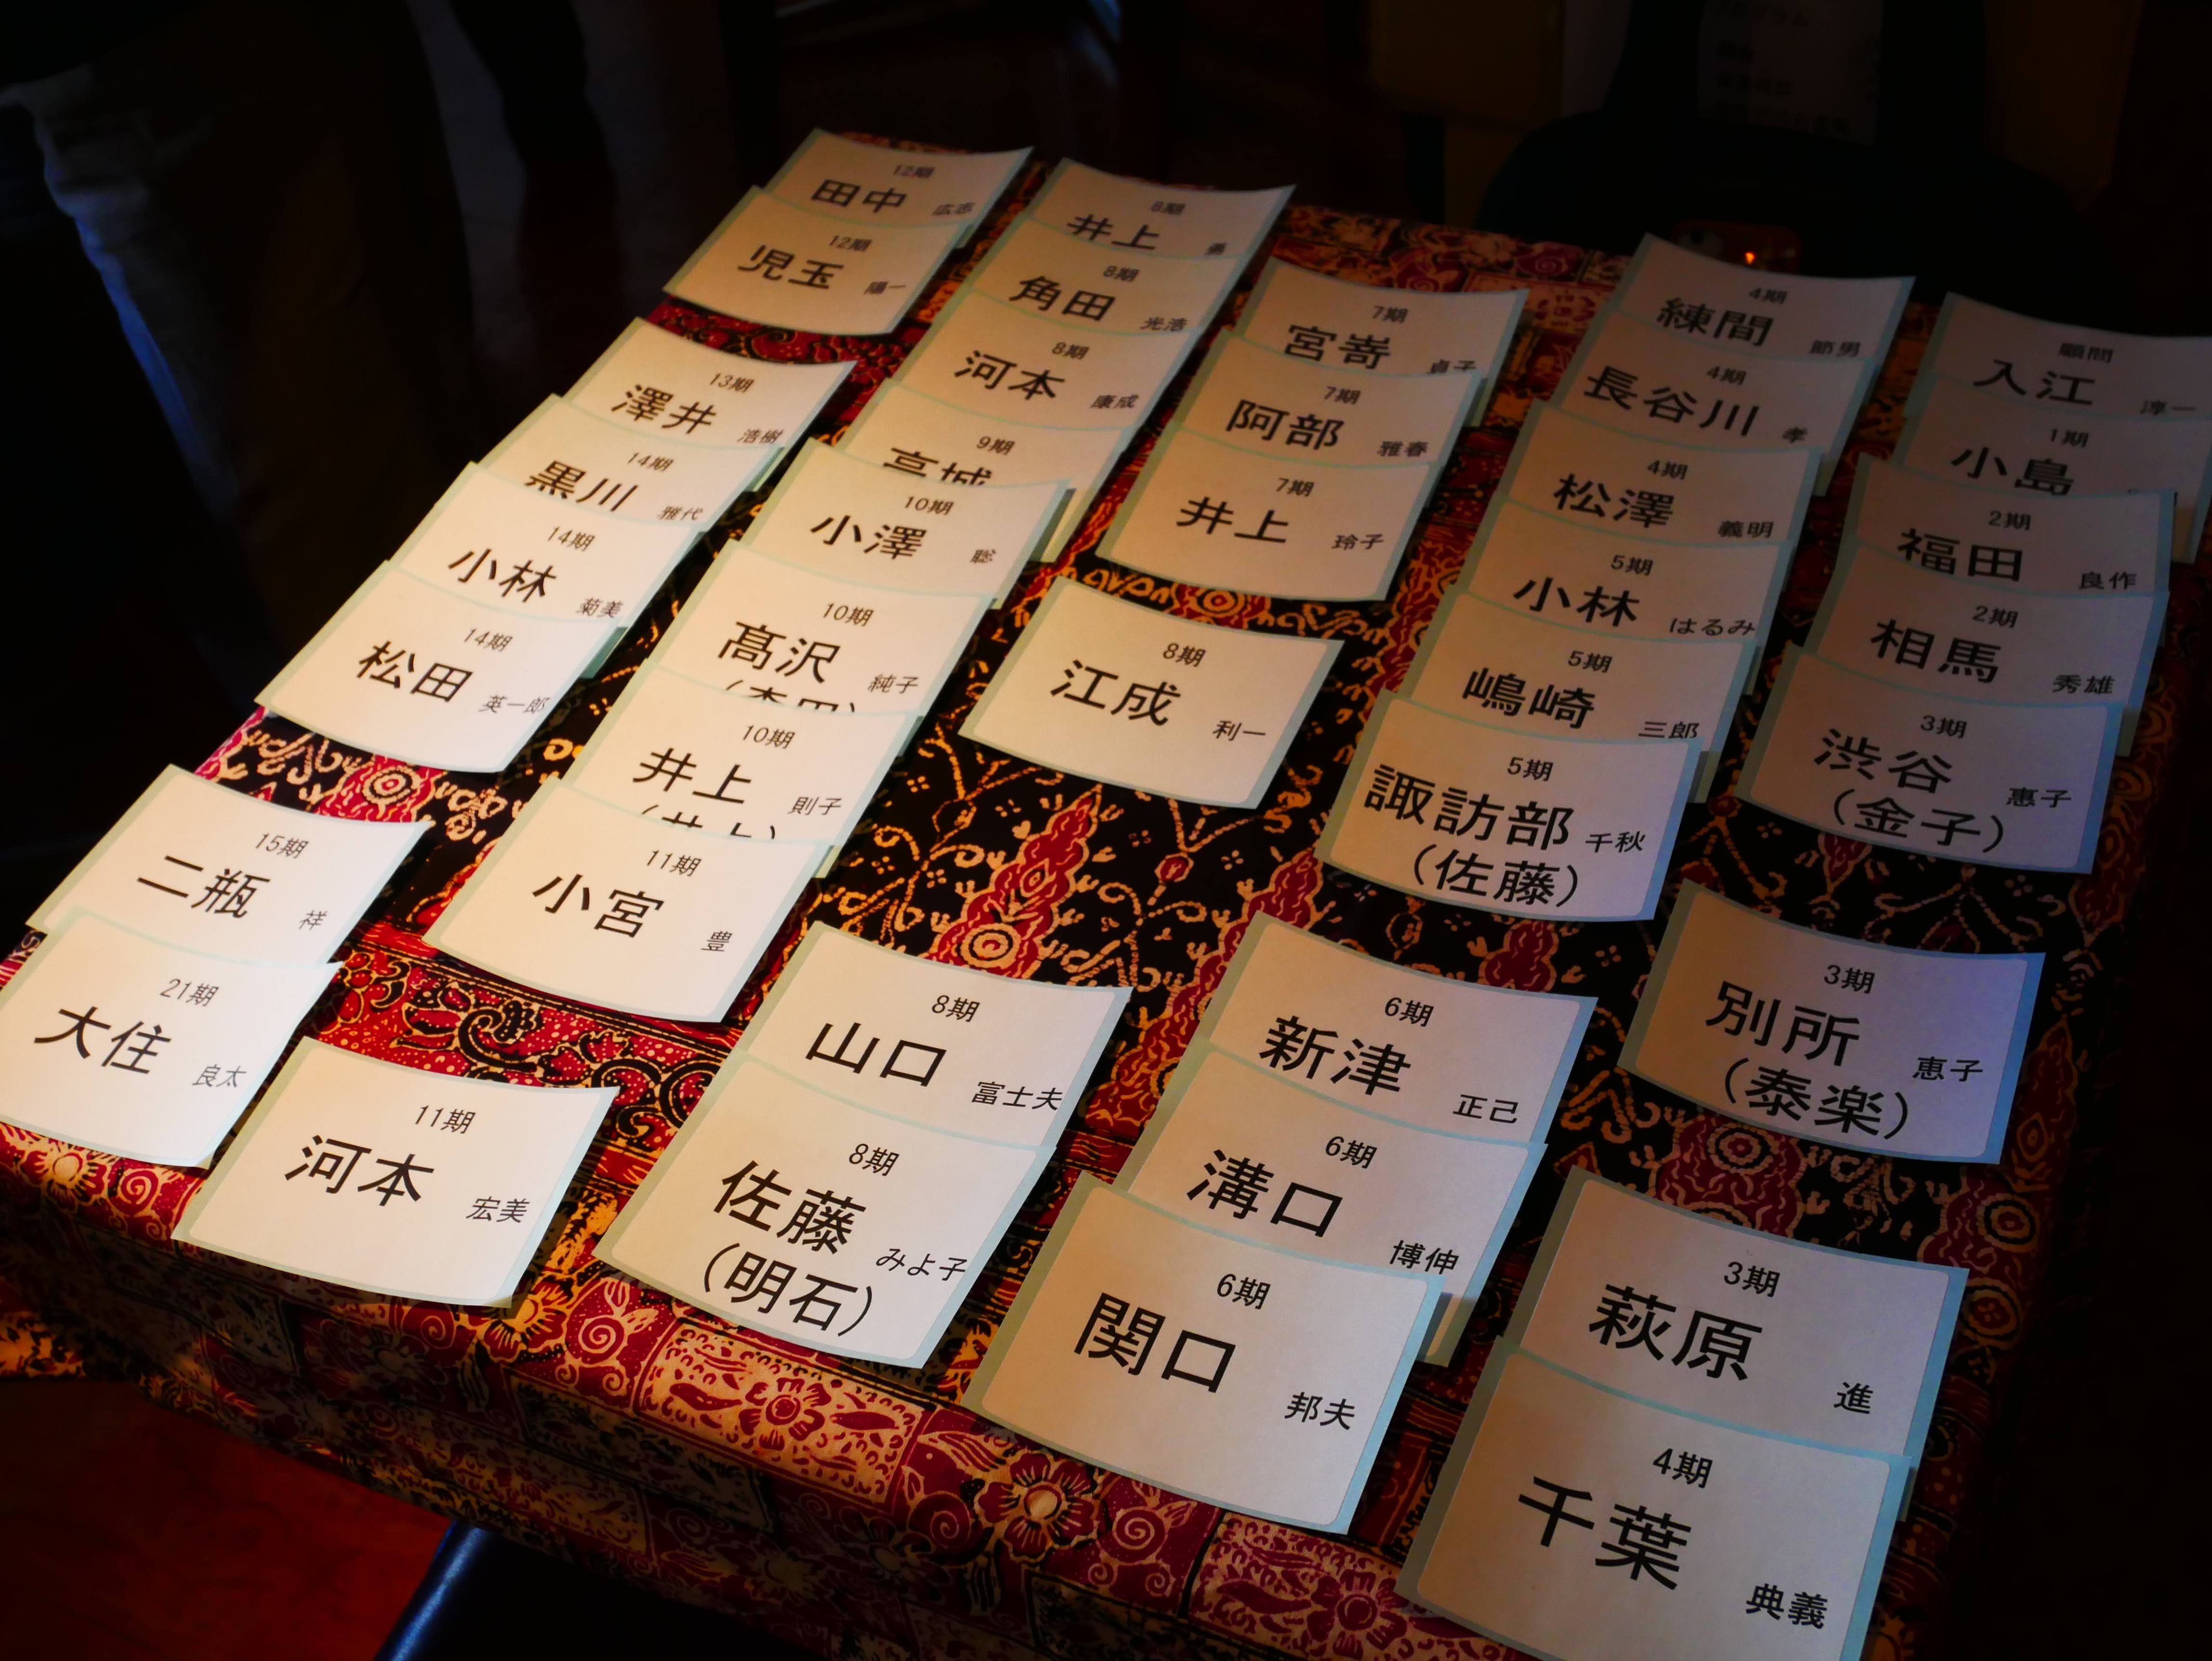 12期
田中 広志
12期
児玉 陽一
13期
澤井 浩樹
14期
黒川 雅代
14期
小林 菊美
14期
松田 英一郎
15期
二瓶 祥
21期
大住 良太
8期
井上 勇
8期
角田 光浩
8期
河本 康成
9期
高城
10期
小澤 聡
10期
髙沢 純子
10期
井上 則子
11期
小宮 豊
11期
河本 宏美
7期
宮嵜 貞子
7期
阿部 雅春
7期
井上 玲子
8期
江成 利一
8期
山口 富士夫
8期
佐藤 みよ子
（明石）
4期
練間 節男
4期
長谷川 孝
4期
松澤 義明
5期
小林 はるみ
5期
嶋崎 三郎
5期
諏訪部 千秋
（佐藤）
6期
新津 正己
6期
溝口 博伸
6期
関口 邦夫
顧問
入江 淳一
1期
小島
2期
福田 良作
2期
相馬 秀雄
3期
渋谷 惠子
（金子）
3期
別所 恵子
（泰楽）
3期
萩原 進
4期
千葉 典義